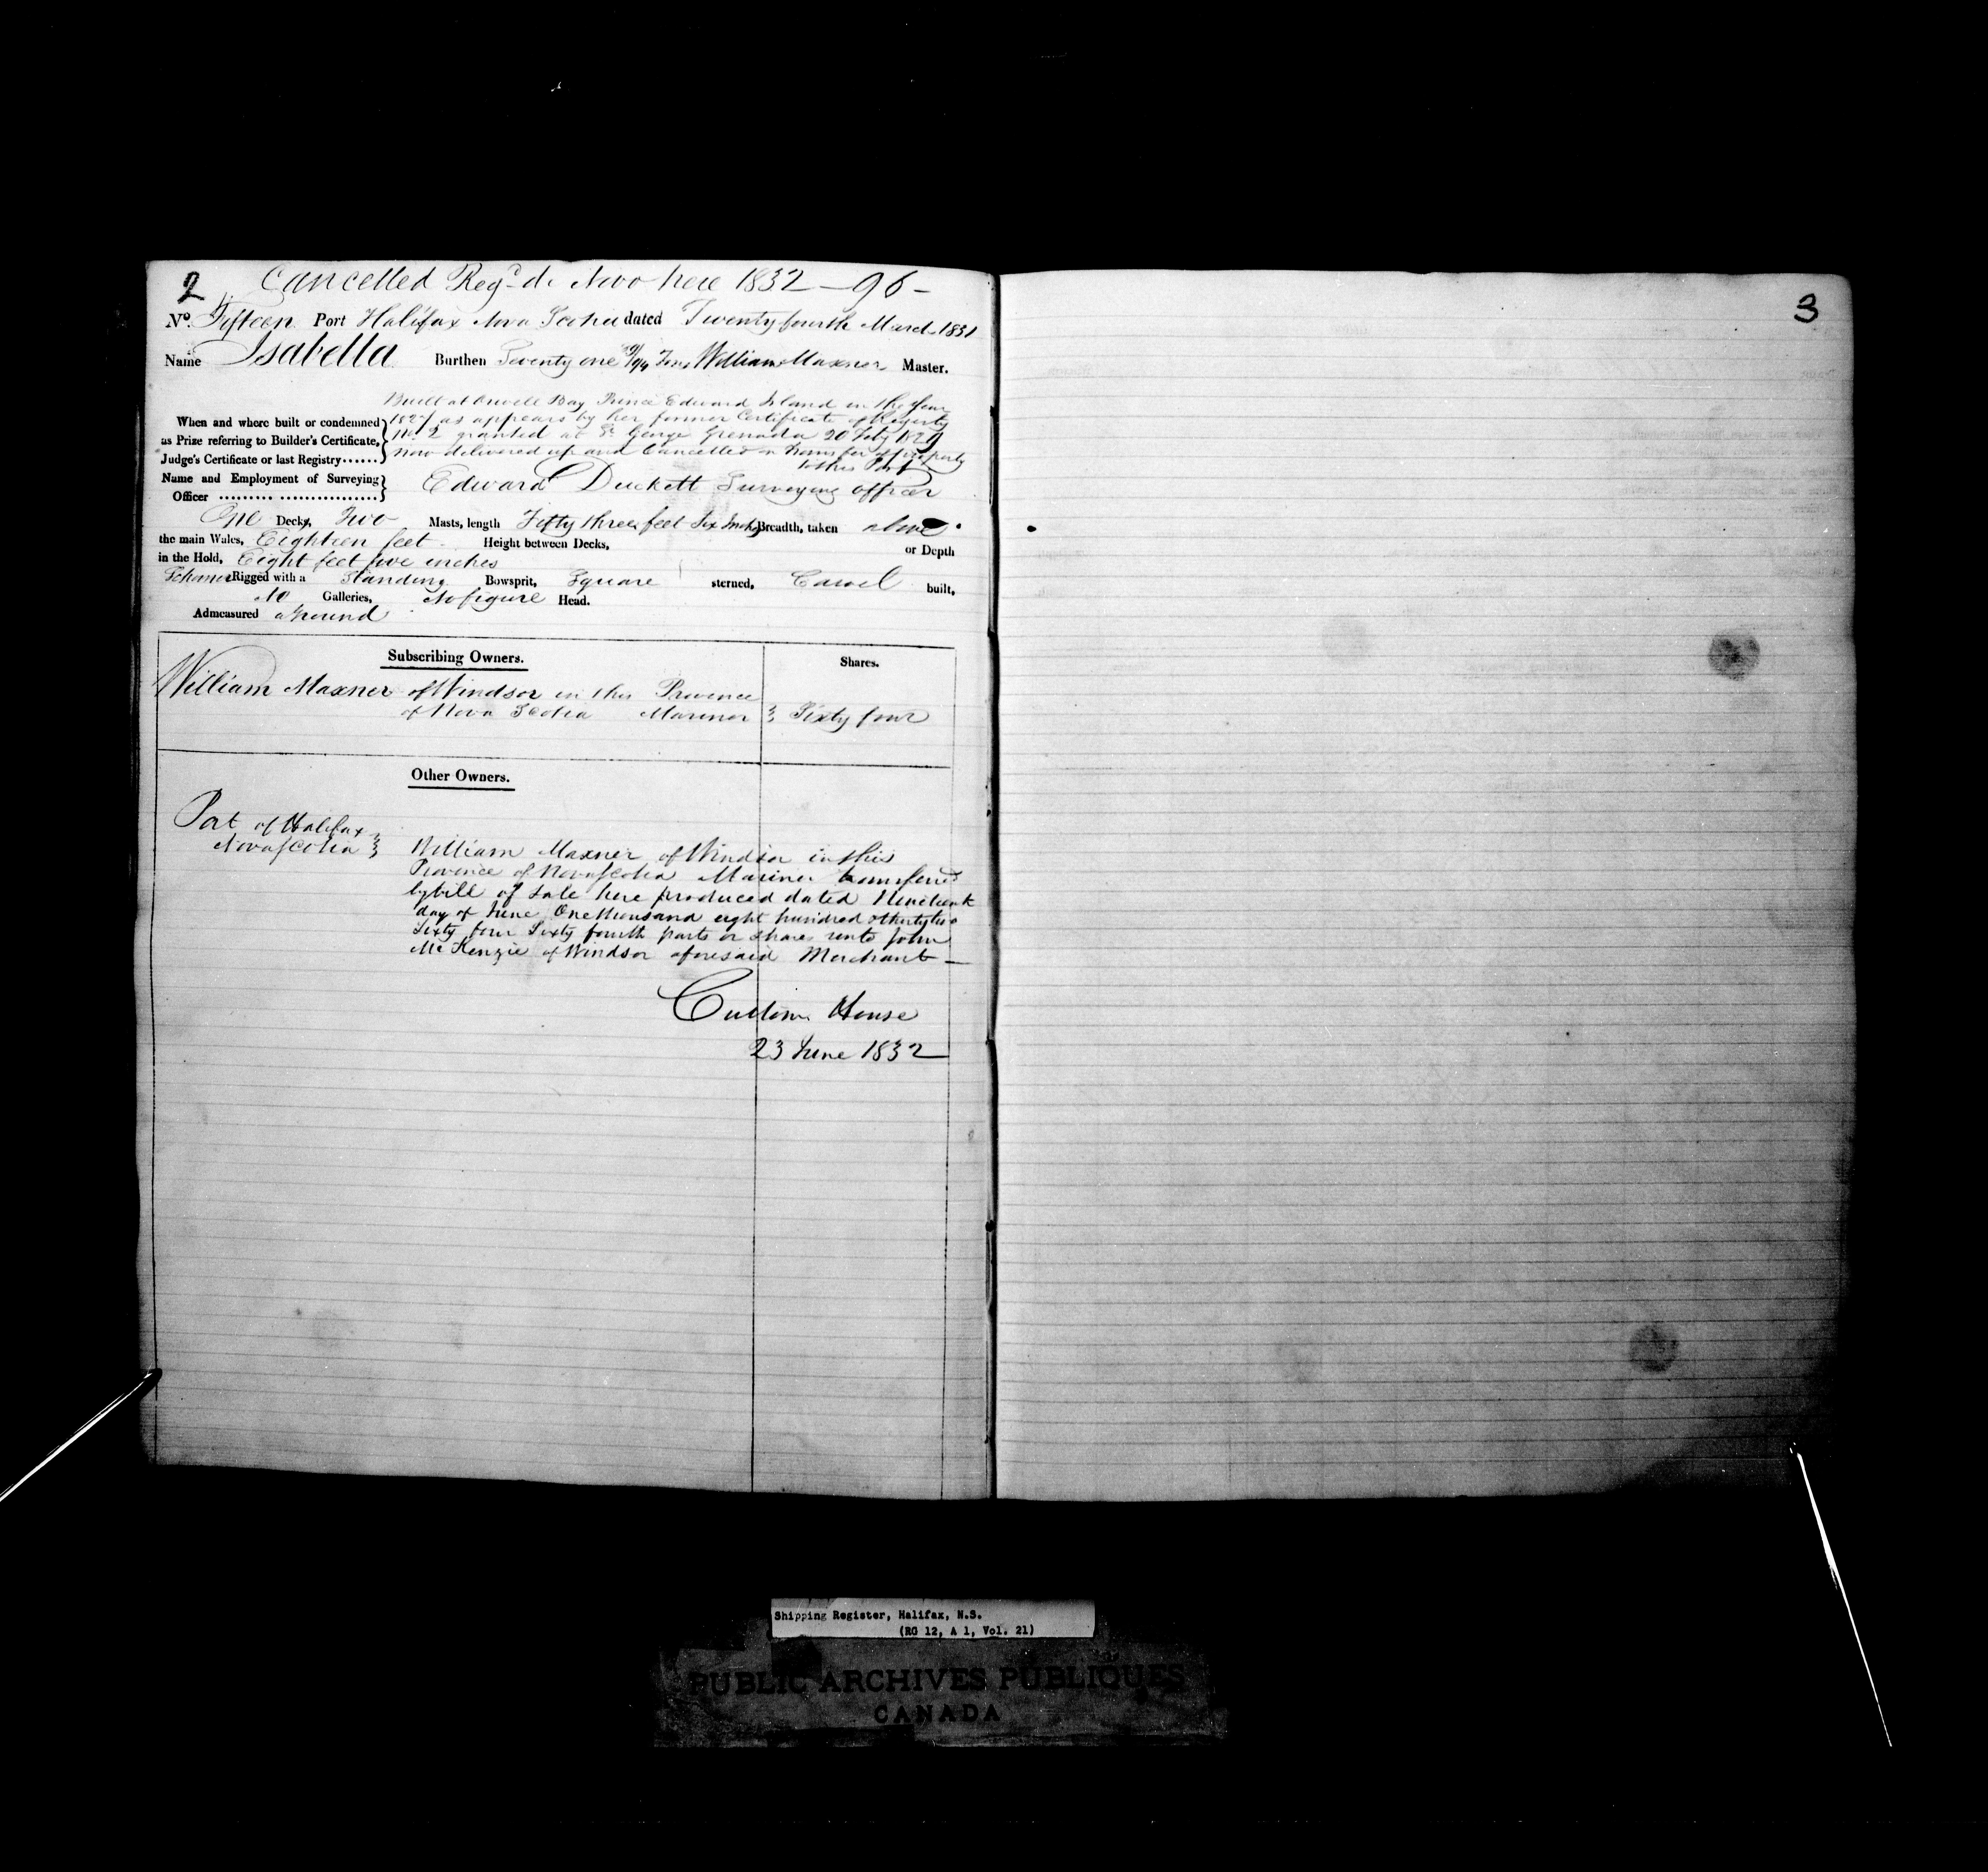 2 Cancelled Regd de Novo here 1832 — 96 —
No. Fifteen Port Halifax Nova Scotia dated Twenty fourth March 1831
Name Isabella Burthen Seventy one /94 Tons William Maxner Master.
Built at Orwell Bay Prince Edward Island in the Year
When and where built or condemned 1827 as appears by her former Certificate of Registry
as Prize referring to Builder's Certificate, No. 2 granted at St George Grenada 20 Feby 1829
Judge's Certificate or last Registry...... now delivered up and Cancelled on Transfer of Property
to this Port
Name and Employment of Surveying
Officer ......... ................. Edward Duckett Surveying officer
One Decks, Two Masts, length Fifty three feet Six Inches Breadth, taken above
the main Wales, Eighteen feet Height between Decks, or Depth
in the Hold, Eight feet five inches
Schooner Rigged with a Standing Bowsprit, Square sterned, Carvel built,
No Galleries, No figure Head.
Admeasured aground
Subscribing Owners. Shares.
William Maxner of Windsor in this Province
of Nova Scotia Mariner } Sixty four
Other Owners.
Port of Halifax
Nova Scotia } William Maxner of Windsor in this
Province of Nova Scotia Mariner transferred
by bill of Sale here produced dated Nineteenth
day of June One thousand eight hundred & thirty two
Sixty four Sixty fourth parts or shares unto John
McKenzie of Windsor aforesaid Merchant —
Custom House
23 June 1832
3
Shipping Register, Halifax, N.S.
(RG 12, A 1, Vol. 21)
PUBLIC ARCHIVES PUBLIQUES
CANADA